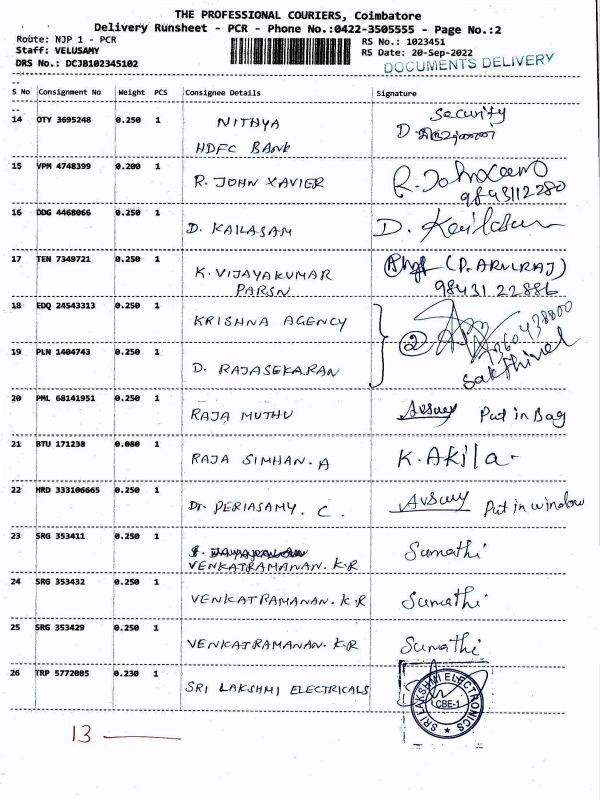 THE PROFESSIONAL COURIERS, Coimbatore
Delivery Runsheet - PCR - Phone No.:0422-3505555 - Page No.:2
Route: NJP 1 - PCR
RS No.: 1023451
Staff: VELUSAMY
RS Date: 20-Sep-2022
DRS No.: DCJB102345102
DOCUMENTS DELIVERY
S No Consignment No Weight PCS Consignee Details Signature
14 OTY 3695248 0.250 1 NITHYA Security
HDFC BANK D.
15 VPM 4748399 0.200 1 R. JOHN XAVIER R. John
9893112280
16 DDG 4468066 0.250 1 D. KAILASAM D. Kailasam
17 TEN 7349721 0.250 1 K. VIJAYAKUMAR (P. ARULRAJ)
PARSN 98431 22886
18 EDQ 24543313 0.250 1 KRISHNA AGENCY 2
19 PLN 1404743 0.250 1 D. RAJASEKARAN Sakthivel
20 PML 68141951 0.250 1 RAJA MUTHU Put in Bag
21 BTU 171238 0.080 1 RAJA SIMHAN. A K. Akila
22 MRD 333106665 0.250 1 Dr. PERIASAMY. C. Put in window
23 SRG 353411 0.250 1 VENKATRAMANAN. K.R Sumathi
24 SRG 353432 0.250 1 VENKATRAMANAN. K.R Sumathi
25 SRG 353429 0.250 1 VENKATRAMANAN. K.R Sumathi
26 TRP 5772085 0.230 1 SRI LAKSHMI ELECTRICALS
SRI LAKSHMI ELECTRONICS
CBE-1
13